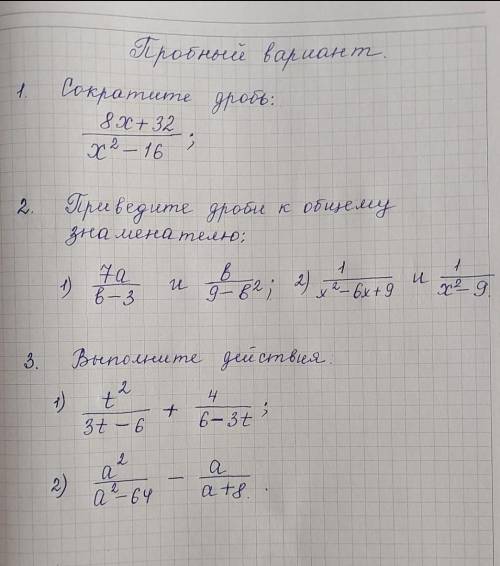 Пробный вариант.
1. Сократите дробь:
(8x+32)/(x²−16);
2. Приведите дроби к общему
знаменателю;
1) 7a/(b−3) и b/(9−b²); 2) 1/(x²−6x+9) и 1/(x²−9).
3. Выполните действия.
1) t²/(3t−6) + 4/(6−3t);
2) a²/(a²−64) − a/(a+8).